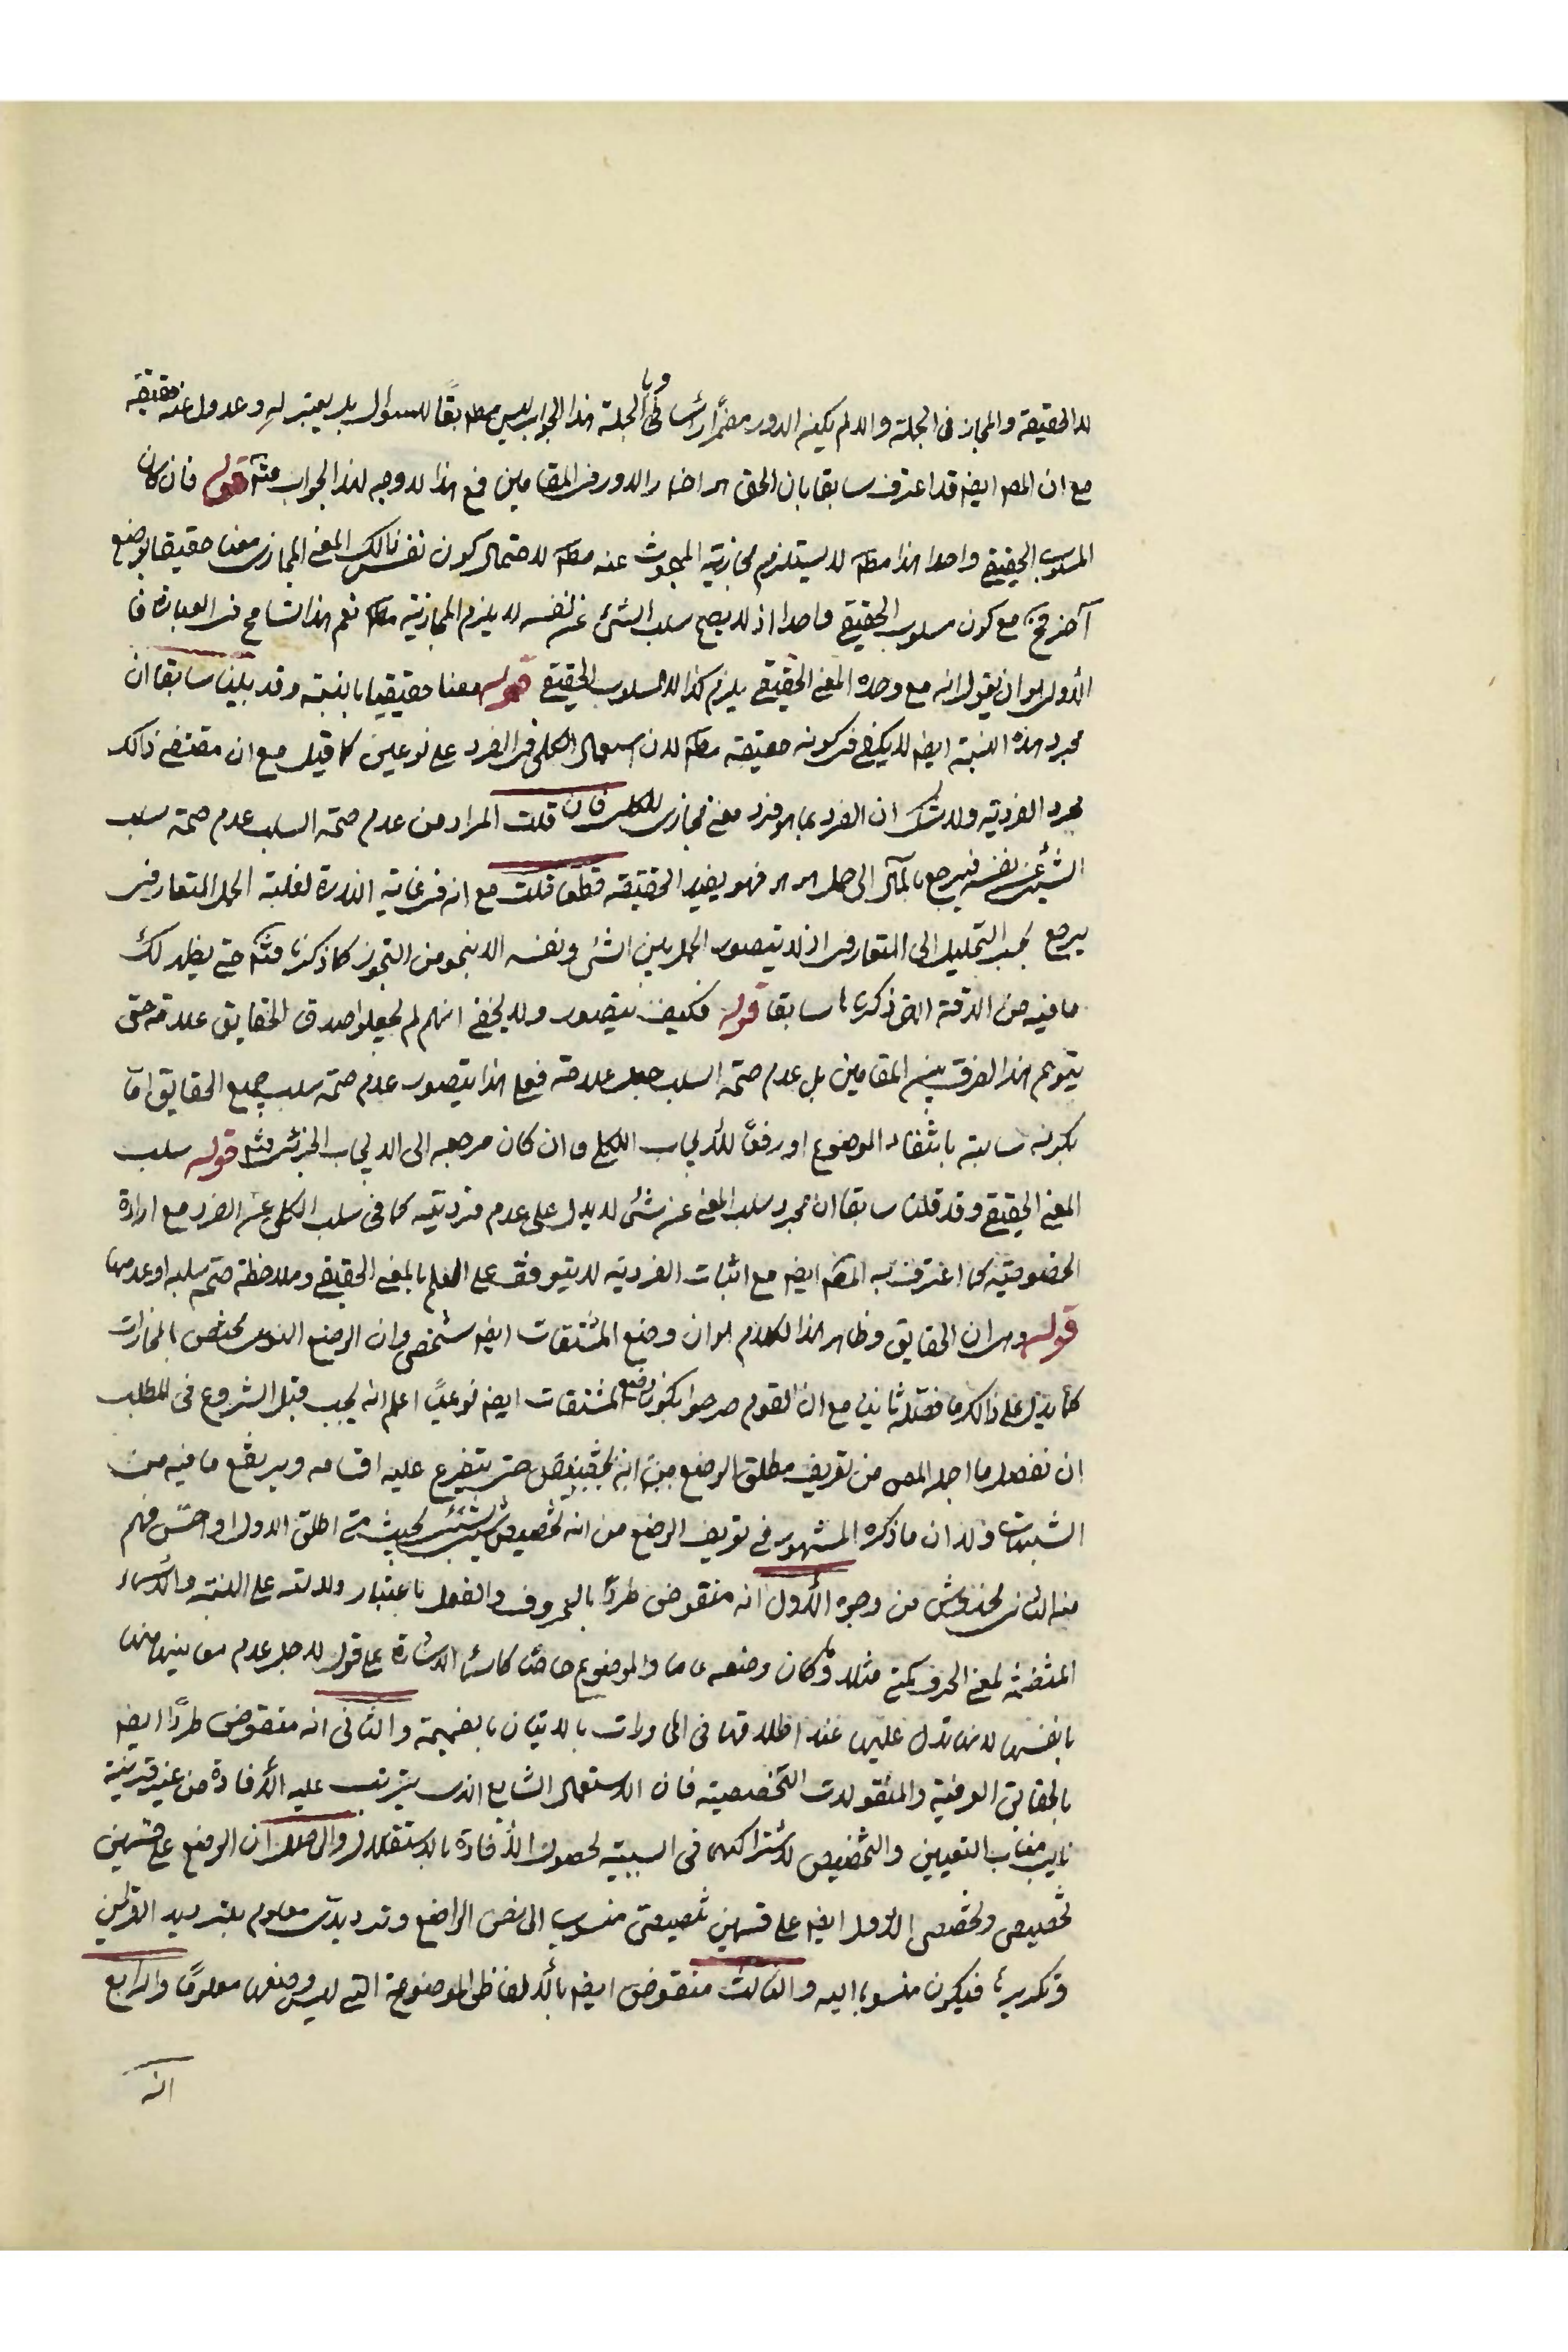 للحقيقة والمجاز فى الجملة والا لم يكن الدور مضمرا راسا وبالجملة هذا الجواب ليس مطابقًا للسؤال بل يعتبر له وعدول عنه حقيقة
مع ان المص ايضه قد اعترف سابقا بان الحق هو اضمار الدور فى المقامين فمع هذا لا وجه لهذا الجواب فتئم قوله فان كان
المسلوب الحقيقي واحدا هذا مطم لا يستلزم مجازية المبحوث عنه مطم لاحتمال كون نفس ذالك المعنى المجازى معنا حقيقيا بوضع
آخر فح مع كون مسلوب الحقيقي واحدا اذ لا يصح سلب الشئ عن نفسه لا يلزم المجازية مطم نعم هذا تسامح فى العبارة فا
الأولى هو ان يقول انه مع وحدة المعنى الحقيقي يلزم كذا لا المسلوب الحقيقي قوله معنا حقيقيا بالنسبة وقد بينا سابقا ان
مجرد هذه النسبة ايضه لا يكفى فى كونه حقيقة مطم لان استعمال الكلى فى الفرد على نوعين كما قيل مع ان مقتضى ذالك
مجرد الفردية ولا شك ان الفرد بما هو فرد معنى مجازى للكلى فان قلت المراد من عدم صحة السلب عدم صحة سلب
الشئ عن نفسه فيرجع بالمآل الى حمل هو هو فهو يفيد الحقيقة قطعا قلت مع انه فى غاية الندرة لغلبة الحمل المتعارفى
يرجع بحسب التحليل الى المتعارفى اذ لا يتصور الحمل بين الشئ ونفسه الا بنحو من التجوز كما ذكرنا فتئم حتى يظهر لك
ما فيه من الدقة التى ذكرناها سابقا قوله فكيف يتصور ولا يخفى انهم لم يجعلوا صدق الحقايق علامة حتى
يتوهم هذا الفرق بين المقامين بل عدم صحة السلب جعل علامة فعلى هذا يتصور عدم صحة سلب جميع الحقايق اما
بكونه سالبة بانتفاء الموضوع او رفعًا للأيجاب الكلى وان كان مرجعه الى الايجاب الجزئى فتئم قوله سلب
المعنى الحقيقي وقد قلنا سابقا ان مجرد سلب المعنى عن شئ لا يدل على عدم فرديته كما فى سلب الكلى عن الفرد مع ارادة
الخصوصية كما اعترف به المص ايضه مع اثبات الفردية لا يتوقف على العلم بالمعنى الحقيقي وملاحظة صحة سلبه او عدمها
قوله وهو ان الحقايق وظاهر هذا الكلام هو ان وضع المشتقات ايضه شخصى وان الوضع النوعى مختص بالمجازات
كما يدل على ذالك ما فصله ثانيا مع ان القوم صرحوا بكون وضع المشتقات ايضه نوعيًا اعلم انه يجب قبل الشروع فى المطلب
ان نفصل ما اجمل المص من تعريف مطلق الوضع من انه تخصيص حتى يتفرع عليه اقسامه ويرتفع ما فيه من
الشبهات فلذا ان ما ذكره المشهور فى تعريف الوضع من انه تخصيص شئ بشئ بحيث متى اطلق الاول او احس فهم
منه الثانى مخدوش من وجوه الأول انه منقوض طردًا بالحروف والفعل باعتبار دلالته على النسبة والأسماء
المتضمنة لمعنى الحرف كمتى مثلا وكان وضعه عاما والموضوع خاصًا كاسماء الاشارة على قول لاجل عدم معانيها منها
بانفسها لانها تدل عليها عند اطلاقها فى المحاورات بالاتيان بالضميمة والثانى انه منقوض طردًا ايضه
بالحقايق العرفية والمنقولات التخصصية فان الاستعمال الشايع الذى يترتب عليه الأفادة من غير قرينة
نايب مناب التعيين والتخصيص لاشتراكهما فى السببية لحصول الأفادة بالاستقلال والحاصل ان الوضع على قسمين
تخصيصى وتخصصى الأول ايضه على قسمين تخصيصى منسوب الى شخص الواضع وترديدى معلوم بترديد القراين
وتكريرها فيكون منسوبا اليه والثالث منقوض ايضه بالألفاظ الموضوعة التى ليس وضعها معلومًا والرابع
انه